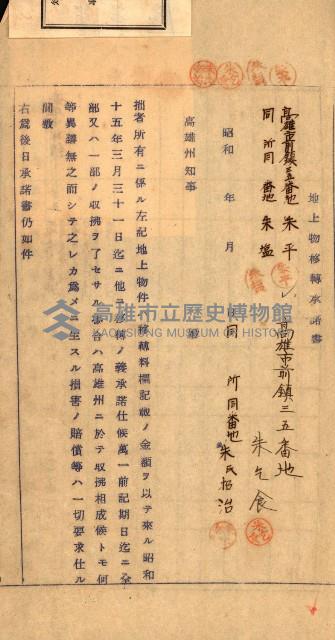 地上物移轉承諾書
高雄市前鎮三五番地
朱乞食
同所同番地
朱氏招治
高雄市前鎮三五番地 朱平
同所同番地 朱塩
昭和 年 月 日
高雄州知事
拙者所有ニ係ル左記地上物件移轉料欄記載ノ金額ヲ以テ來ル昭和
十五年三月三十一日迄ニ他ニ移轉ノ義承諾仕候萬一前記期日迄ニ全
部又ハ一部ノ收拂ヲ了セサル場合ハ高雄州ニ於テ收拂相成候トモ何
等異議無之而シテ之レカ為メニ生スル損害ノ賠償等ハ一切要求仕ル
間敷
右為後日承諾書仍如件
高雄市立歷史博物館
KAOHSIUNG MUSEUM OF HISTORY